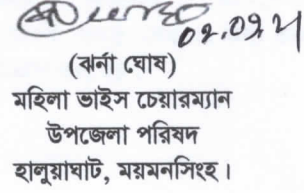 (ঝর্না ঘোষ)
মহিলা ভাইস চেয়ারম্যান
উপজেলা পরিষদ
হালুয়াঘাট, ময়মনসিংহ।